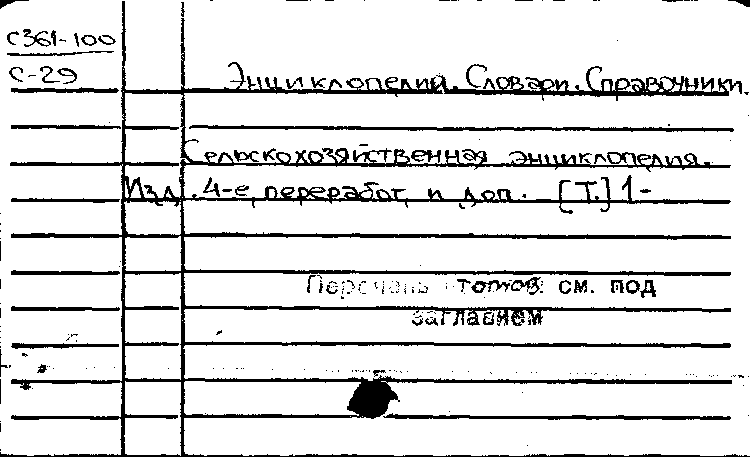 С361-100
С-29
Энциклопедии. Словари. Справочники.
Сельскохозяйственная энциклопедия.
Изд. 4-е, переработ. и доп. [Т.] 1-
Перечень томов см. под
заглавием